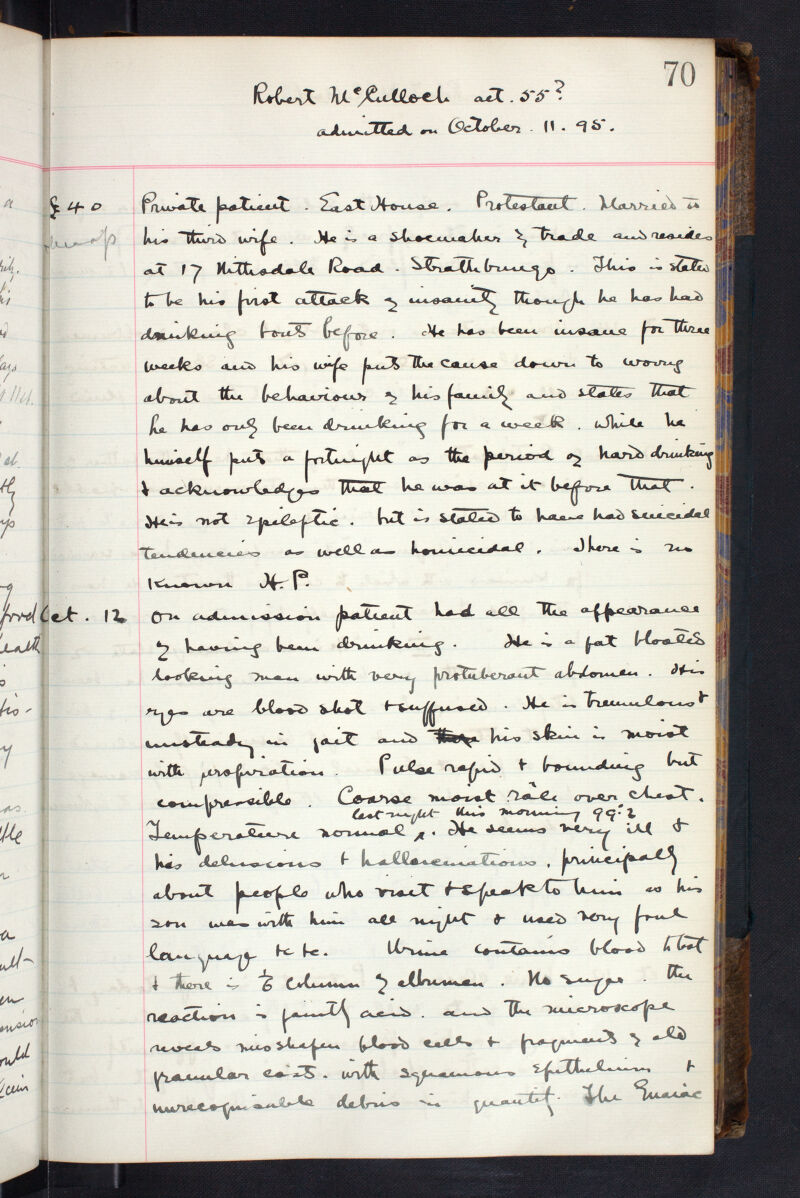 70
Robert McCulloch aet. 55?
admitted on October. 11. 95.
£40 Private patient. East House. Protestant. Married to
his third wife. He is a shoemaker by trade and resides
at 17 Nithsdale Road. Strathbungo. This is stated
to be his first attack of insanity though he has had
drinking bouts before. He has been insane for three
weeks and his wife puts the cause down to worry
about the behaviour of his family and states that
he has only been drinking for a week. while he
himself puts a fortnight as the period of hard drinking
& acknowledges that he was at it before that.
He is not epileptic. but is stated to have had suicidal
tendencies as well as homicidal. There is no
known H.P.
Oct. 12 On admission patient had all the appearance
of having been drinking. He is a fat bloated
looking man with very protuberant abdomen. His
eyes are blood shot & suffused. He is tremulous &
unsteady in gait and his skin is moist
with perspiration. Pulse rapid & bounding but
compressible. Coarse moist râle over chest.
last night this morning 99.2
Temperature normal. He seems very ill &
has delusions & hallucinations, principally
about people who visit & speak to him as his
son was with him all night & used very foul
language &c &c. Urine contains blood
& there is 1/6 column of albumen. No sugar. The
reaction is faintly acid. and the microscope
reveals misshapen blood cells & fragments of old
granular casts. with squamous epithelium &
unrecognisable debris in quantity. The Guaiac